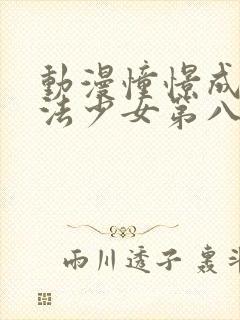 動漫憧憬成
法少女第八
雨川透子 裊